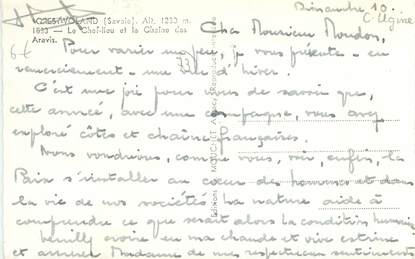 Dimanche 10.
CREST-VOLAND (Savoie). Alt. 1230 m. Cher Monsieur
1633 — Le Chef-lieu et la Chaîne des
Aravis.
Pour varier un peu, je vous présente - en
remerciement - une vue d'hiver.
C'est une joie pour nous de savoir que,
cette année, avec une compagne, vous avez
exploré côtes et chaîne françaises.
Nous voudrions, comme vous, voir, enfin, la
Paix s'installer au cœur des hommes et dans
la vie de nos sociétés. La nature aide à
comprendre ce que serait alors la condition humaine
Veuillez croire en ma chaude et vive estime
et Madame de mes respectueux sentiments
Editions